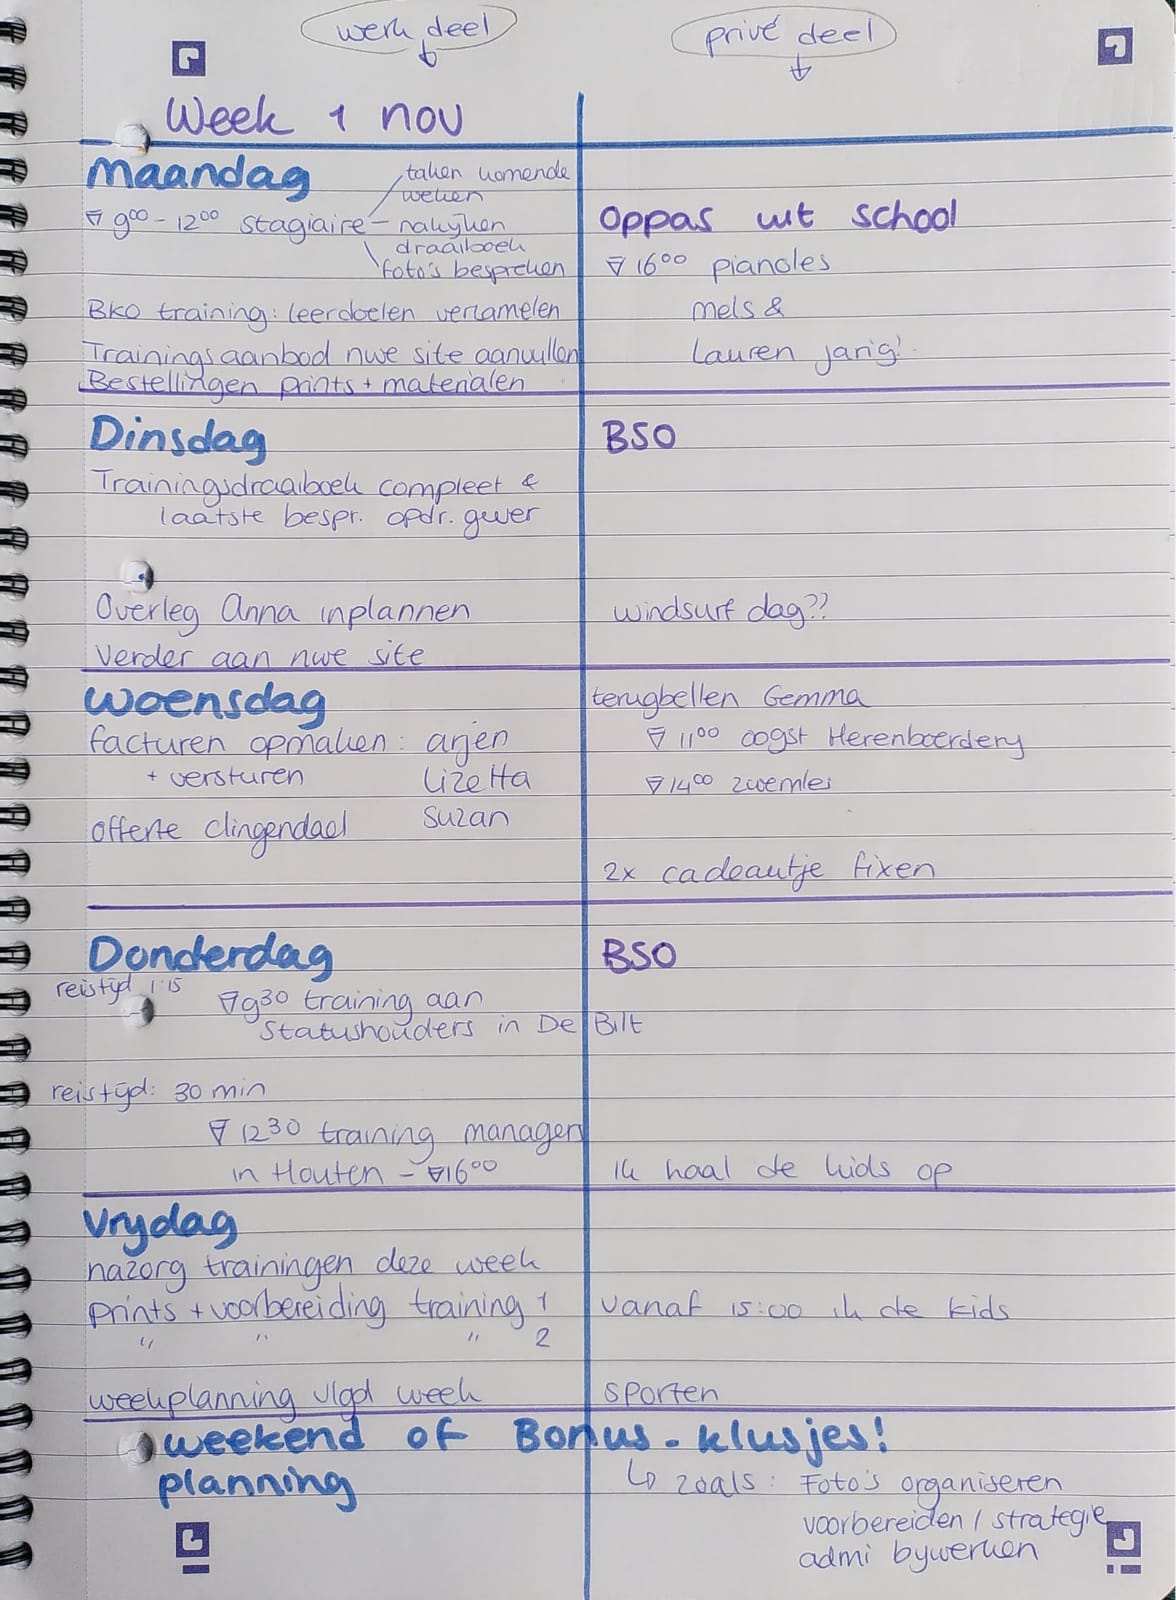 werk deel
privé deel
Week 1 nov
Maandag
taken komende
weken
9⁰⁰ - 12⁰⁰ stagiaire - nakijken
draaiboek
foto's bespreken
BKO training: leerdoelen verzamelen
Trainingsaanbod nwe site aanvullen
Bestellingen prints + materialen
Oppas uit school
16⁰⁰ pianoles
Mels &
Lauren jarig!
Dinsdag
Trainingsdraaiboek compleet &
laatste bespr. opdr. gever
Overleg Anna inplannen
Verder aan nwe site
BSO
windsurf dag??
Woensdag
facturen opmaken: arjen
+ versturen Lizetta
Suzan
offerte clingendael
terugbellen Gemma
11⁰⁰ oogst Herenboerderij
14⁰⁰ zwemles
2x cadeautje fixen
Donderdag
BSO
reistijd 1:15
9³⁰ training aan
Statushouders in De Bilt
reistijd: 30 min
12³⁰ training managen
in Houten - 16⁰⁰
Ik haal de kids op
Vrijdag
nazorg trainingen deze week
prints + voorbereiding training 1
" " " 2
weekplanning vlgd week
vanaf 15:00 ik de kids
sporten
weekend of Bonus-klusjes!
planning
zoals: Foto's organiseren
voorbereiden / strategie
admi bijwerken